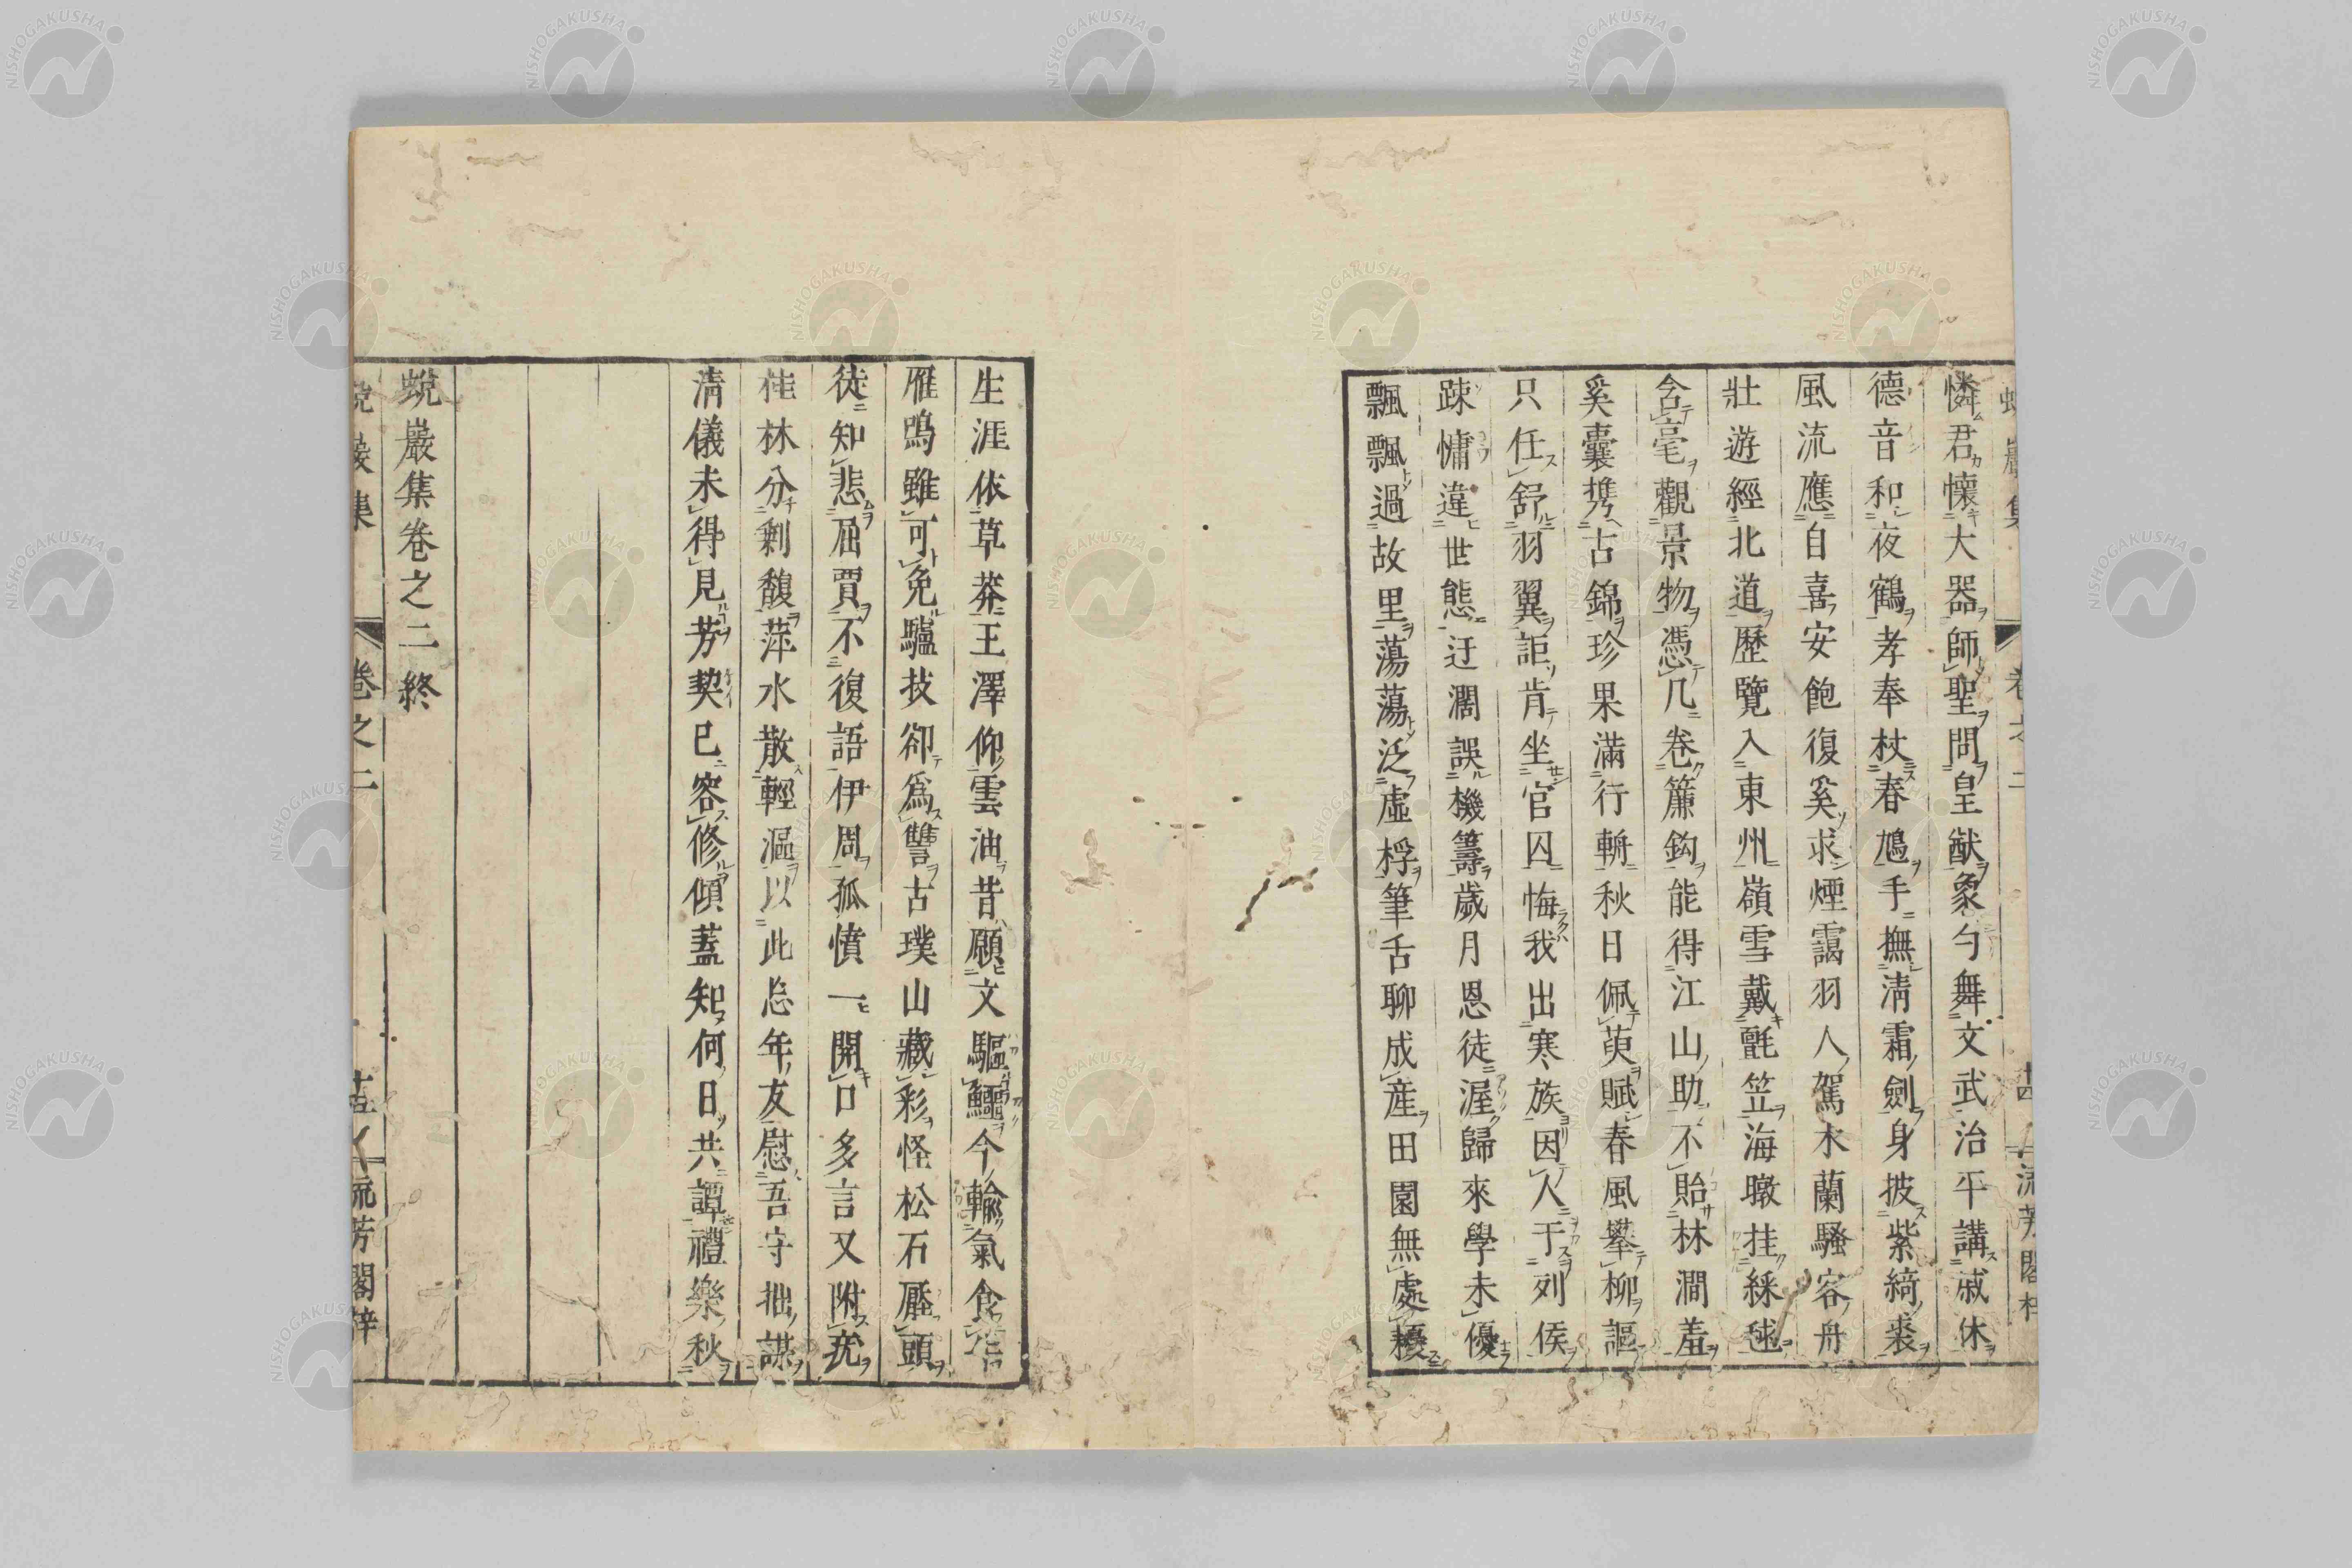 憐君懷大器師聖問皇猷象勺舞文武治平講戚休
德音和夜鶴孝奉杖春鳩手撫清霜劍身披紫綺裘
風流應自喜安飽復奚求煙靄羽人駕木蘭騷客舟
壯遊經北道歷覽入東州嶺雪戴氈笠海暾挂綵毬
含毫觀景物憑几卷簾鈎能得江山助不貽林澗羞
奚囊携古錦珍果滿行輈秋日佩萸賦春風攀柳謳
只任舒羽翼詎肯坐官囚悔我出寒族因人干列侯
踈慵違世態迂濶誤機籌歲月恩徒渥歸來學未優
飄飄過故里蕩蕩泛虛桴筆舌聊成産田園無處耰
生涯依草莽王澤仰雲油昔願文驅鱷今輸氣食
雁鳴雖可免驢技卻爲讐古璞山藏彩怪松石壓頭
徒知悲屈賈不復語伊周孤憤一開口多言又附疣
桂林分剩馥萍水散輕漚以此忘年友慰吾守拙謀
清儀未得見芳契已容修傾蓋知何日共譚禮樂秋
蛻巖集卷之二終
卷之二
流芳閣梓
NISHOGAKUSHA